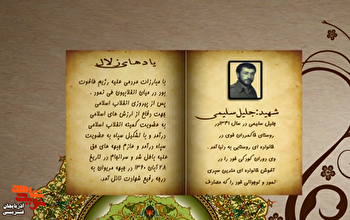 شهید:جلیل سلیمی
جلیل سلیمی در سال ۱۳۴۱در
روستای قاهمران قوی در
خانواده ای روستایی به دنیا آمد .
وی دوران کودکی خود را در
آغوش خانواده ای متدین سپری
نمود و نوجوانی خود را که مصادف
یادهای زلال
با مبارزات مردمی علیه رژیم طاغوت
بود در میان انقلابیون طی نمود .
پس از پیروزی انقلاب اسلامی
جهت دفاع از ارزش های اسلامی
به عضویت کمیته انقلاب اسلامی
در آمد و با تشکیل سپاه به عضویت
سپاه در آمد و عازم جبهه های حق
علیه باطل شد و سرانجام در تاریخ
۲۸ آبان ۱۳۶۰ در جبهه مریوان به
درجه رفیع شهادت نائل آمد.
آذربایجان
غربی